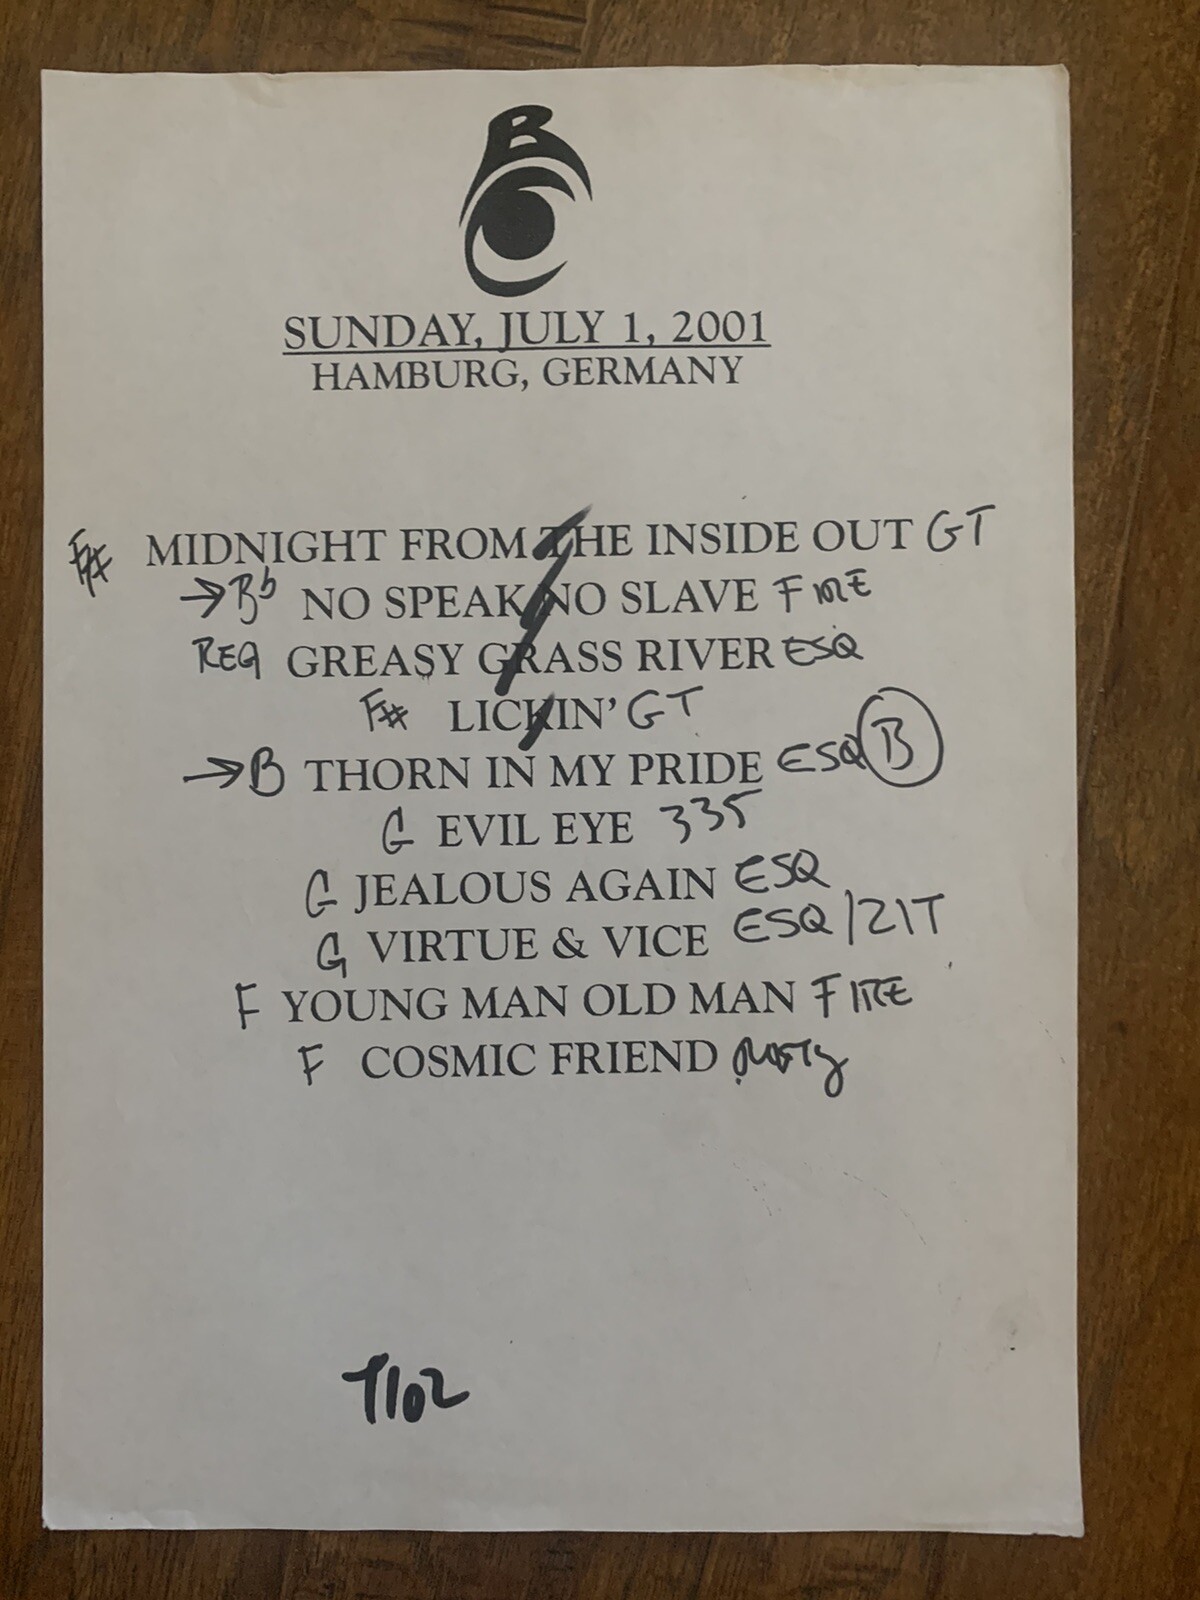 B
SUNDAY, JULY 1, 2001
HAMBURG, GERMANY
F# MIDNIGHT FROM THE INSIDE OUT GT
→Bb NO SPEAK NO SLAVE FIRE
REG GREASY GRASS RIVER ESQ
F# LICKIN' GT
→B THORN IN MY PRIDE ESQ B
G EVIL EYE 335
G JEALOUS AGAIN ESQ
G VIRTUE & VICE ESQ/ZIT
F YOUNG MAN OLD MAN FIRE
F COSMIC FRIEND